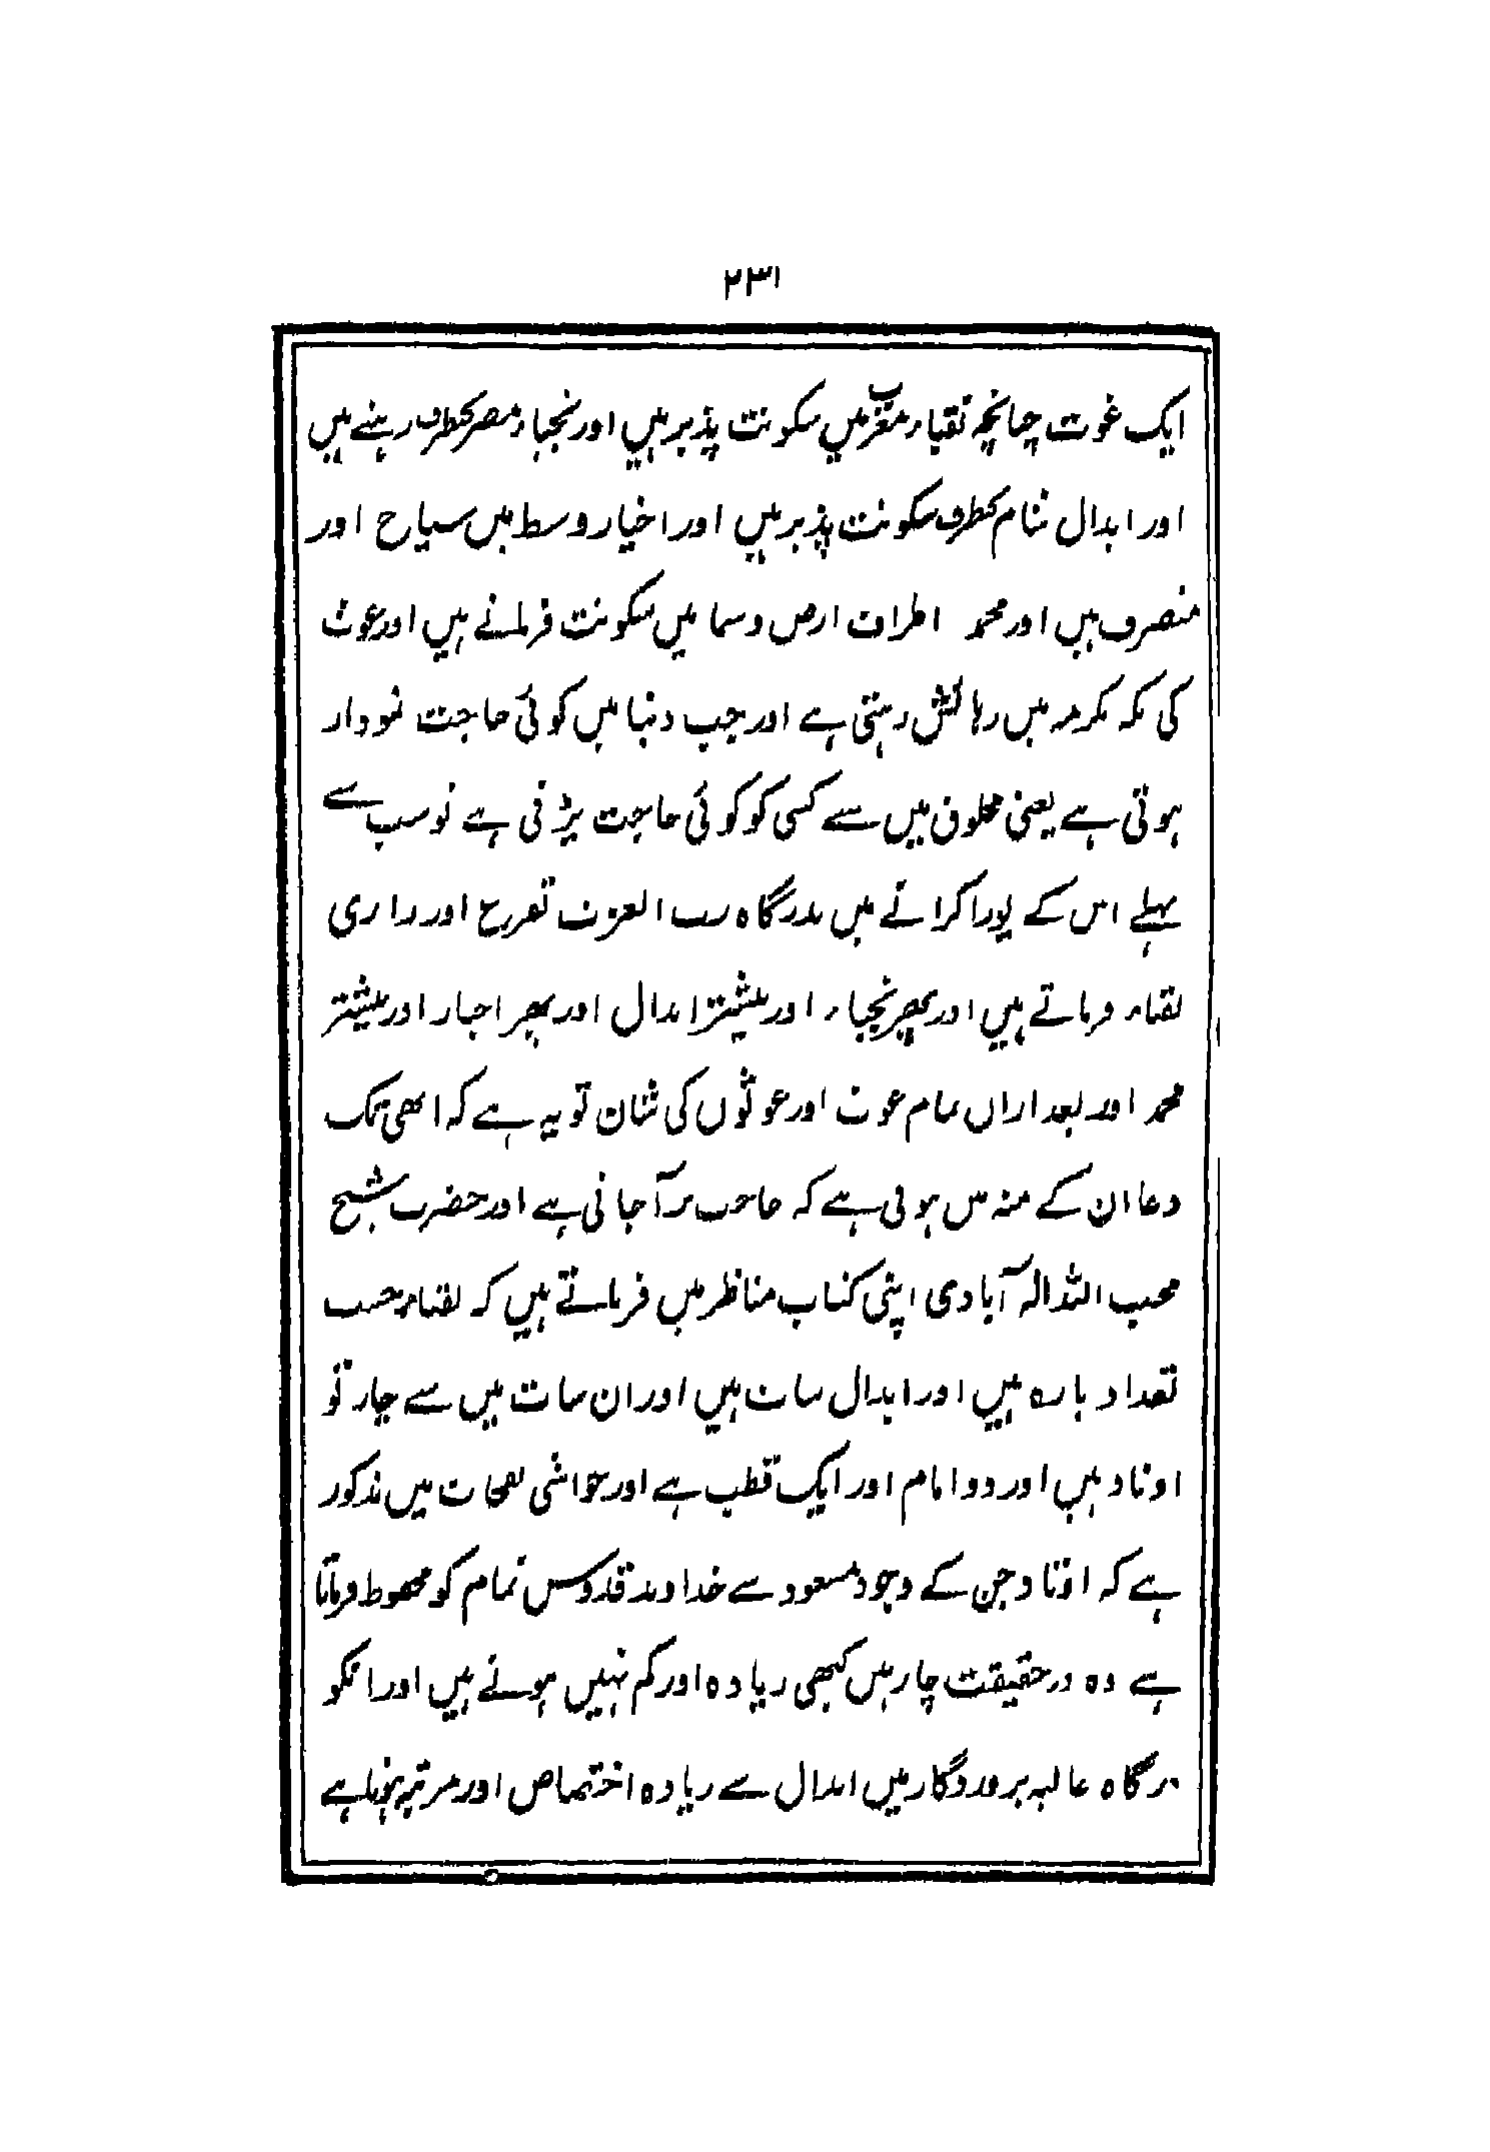 ۲۳۱
ایک غوث چنانچہ نقباء مغرب میں سکونت پذیر ہیں اور نجباء مصر کیطرف رہتے ہیں
اور ابدال شام کیطرف سکونت پذیر ہیں اور اخیار وسط میں سیاح اور
متصرف ہیں اور محمد اطراف ارض و سما میں سکونت فرماتے ہیں اور غوث
کی مکہ مکرمہ میں رہائش رہتی ہے اور جب دنیا میں کوئی حاجت نمودار
ہوتی ہے یعنی مخلوق میں سے کسی کو کوئی حاجت پڑتی ہے تو سب سے
پہلے اس کے پورا کرانے میں بدرگاہ رب العزت تضرع اور زاری
نقباء فرماتے ہیں اور پھر نجباء اور بیشتر ابدال اور پھر اخیار اور بیشتر
محمد اور بعد ازاں تمام غوث اور غوثوں کی شان تو یہ ہے کہ ابھی تک
دعا ان کے منہ میں ہوتی ہے کہ حاجت برآ جاتی ہے اور حضرت شیخ
محب اللہ الہ آبادی اپنی کتاب مناظر میں فرماتے ہیں کہ نقباء حسب
تعداد بارہ ہیں اور ابدال سات ہیں اور ان سات میں سے چار تو
اوتاد ہیں اور دو امام اور ایک قطب ہے اور حواشی نفحات میں مذکور
ہے کہ اوتاد جن کے وجود مسعود سے خداوند قدوس تمام کو محفوظ فرماتا
ہے وہ درحقیقت چار ہیں کبھی زیادہ اور کم نہیں ہوتے ہیں اور انکو
درگاہ عالیہ پروردگار میں ابدال سے زیادہ اختصاص اور مرتبہ ہوتا ہے